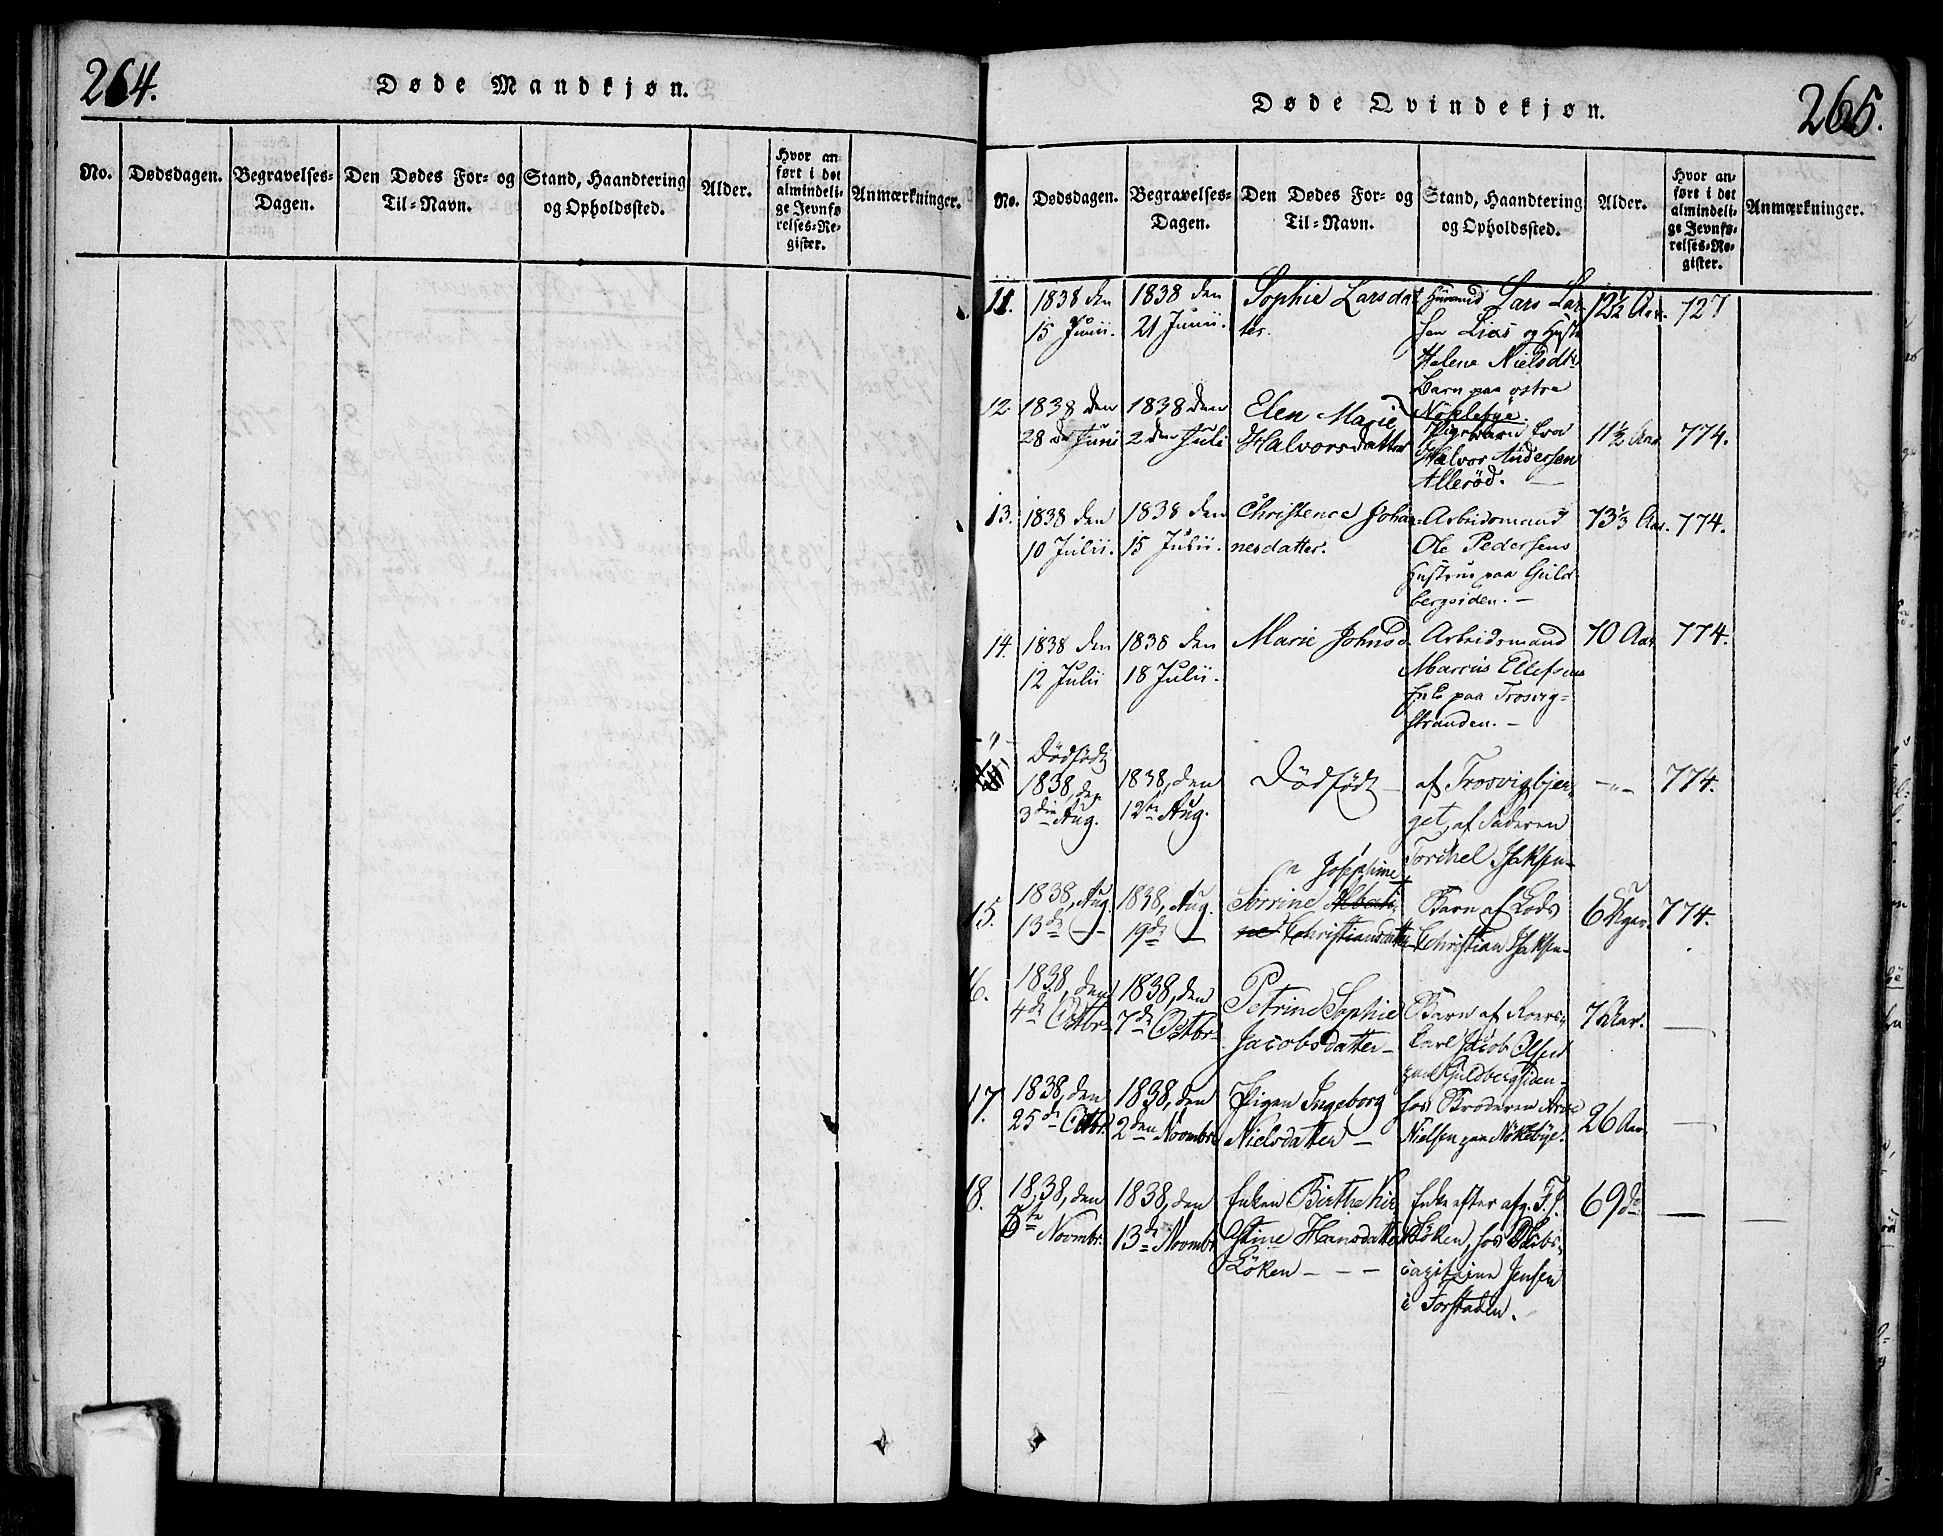 264.
Døde Mandkjøn.
No.
Dødsdagen.
Begravelses-
Dagen.
Den Dødes For- og
Til-Navn.
Stand, Haandtering
og Opholdssted.
Alder.
Hvor an-
ført i det
almindeli-
ge Jevnfø-
relses-Re-
gister.
Anmærkninger.
265.
Døde Qvindekjøn.
No.
Dødsdagen.
Begravelses-
Dagen.
Den Dødes For- og
Til-Navn.
Stand, Haandtering
og Opholdssted.
Alder.
Hvor an-
ført i det
almindeli-
ge Jevnfø-
relses-Re-
gister.
Anmærkninger.
11.
1838 den
15 Junii.
1838 den
21 Junii.
Sophie Larsdat
ter.
Lars Lar
sen Lies og Hustr
Helene Nielsdtr
Barn paa østre
Nøklebye.
12½ Aar.
727
12.
1838 den
28 de Juni
1838 den
2 den Juli
Elen Marie
Halvorsdatter
Pigebarn fra
Halvor Andersen
Allerød. —
11½ Aar
774.
13.
1838 den
10 Julii.
1838 den
15 Julii.
Christence Johan
nesdatter.
Arbeidsmand
Ole Pedersens
Hustrue paa Guld
bergsiden. —
73⅓ Aar.
774.
14.
1838 den
12 Julii
1838 den
18 Julii.
Marie Johnsd.
Arbeidsmand
Marcus Ellefsens
paa Trosvig-
stranden. —
70 Aar
774.
— " —
Dødfødt
1838, den
3die Aug.
1838, den
12te Aug.
Dødfødt —
af Trosvigbjer-
get, af Faderen
Torkel Isaksen
— " —
774.
15.
1838, Aug.
13de —
1838, Aug.
19de —
Josephine
Sørrine Alberti-
ne Christiansdatter
Barn af Lods
Christian Isaksen
6 Uger.
774.
16.
1838, den
4de Octbr
1838, den
7de Octbr
Petrine Sophie
Jacobsdatter —
Barn af Roers-
karl Jacob Olsen
paa Guldbergsiden.
7 Aar.
—
17.
1838, den
25de Octbr.
1838, den
2den Novmbr
Pigen Ingeborg
Nielsdatter —
hos Broderen Arne
Nielsen paa Nøkebye.
26 Aar
—
18.
1838, den
5te Novmbr.
1838, den
13de Novmbr
Enken Birthe Kir
stine Hansdatter
Løken — — —
Enke efter afg. F. J.
Løken, hos Skibs-
capitaine Jensen
i Forstaden.
69 do
—
—